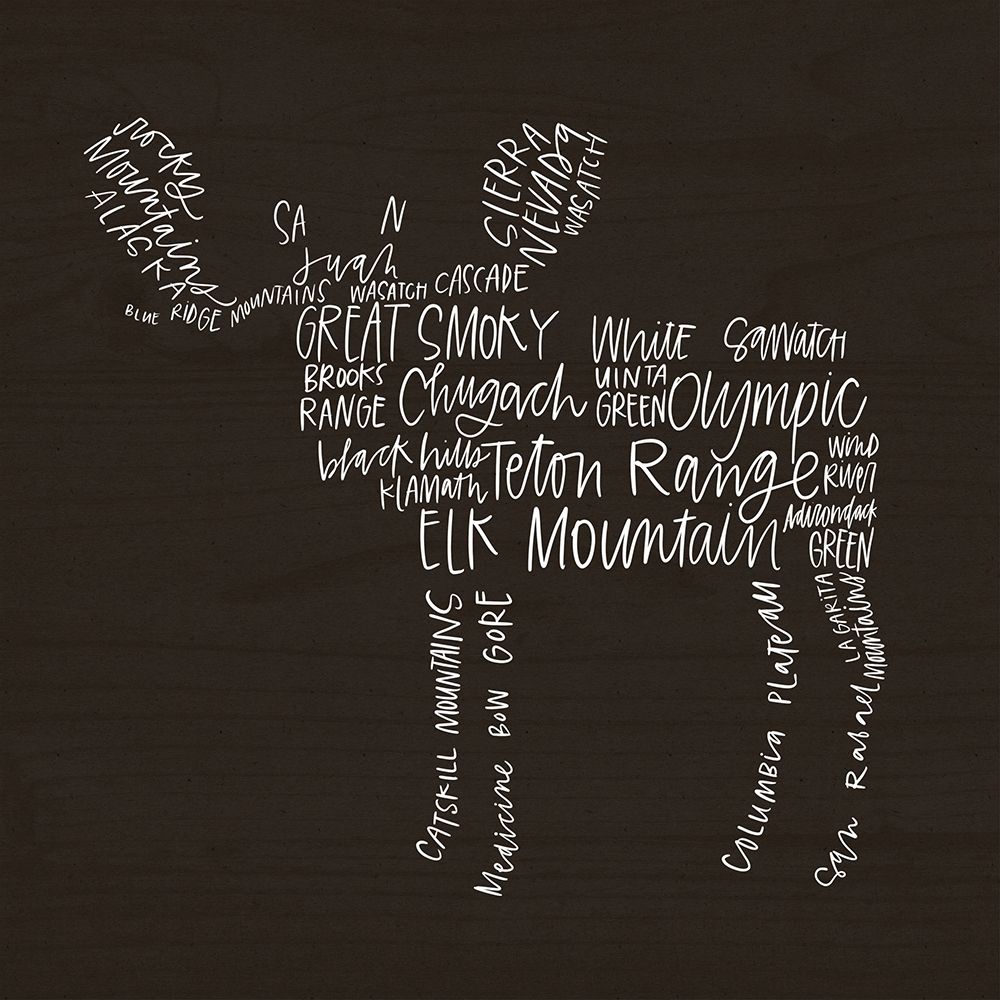 rocky
Mountains
ALASKA
SIERRA
NEVADA
WASATCH
SAN
Juan
BLUE RIDGE MOUNTAINS
WASATCH
CASCADE
GREAT SMOKY
White
SAWATCH
BROOKS
RANGE
Chugach
UINTA
GREEN
Olympic
black hills
KLAMath
Teton Range
WIND
RIVER
ELK Mountain
Adirondack
GREEN
CATSKILL MOUNTAINS
Medicine BOW GORE
COLUMBIA PLATEAU
LA GARITA
MOUNTAINS
San Rafael